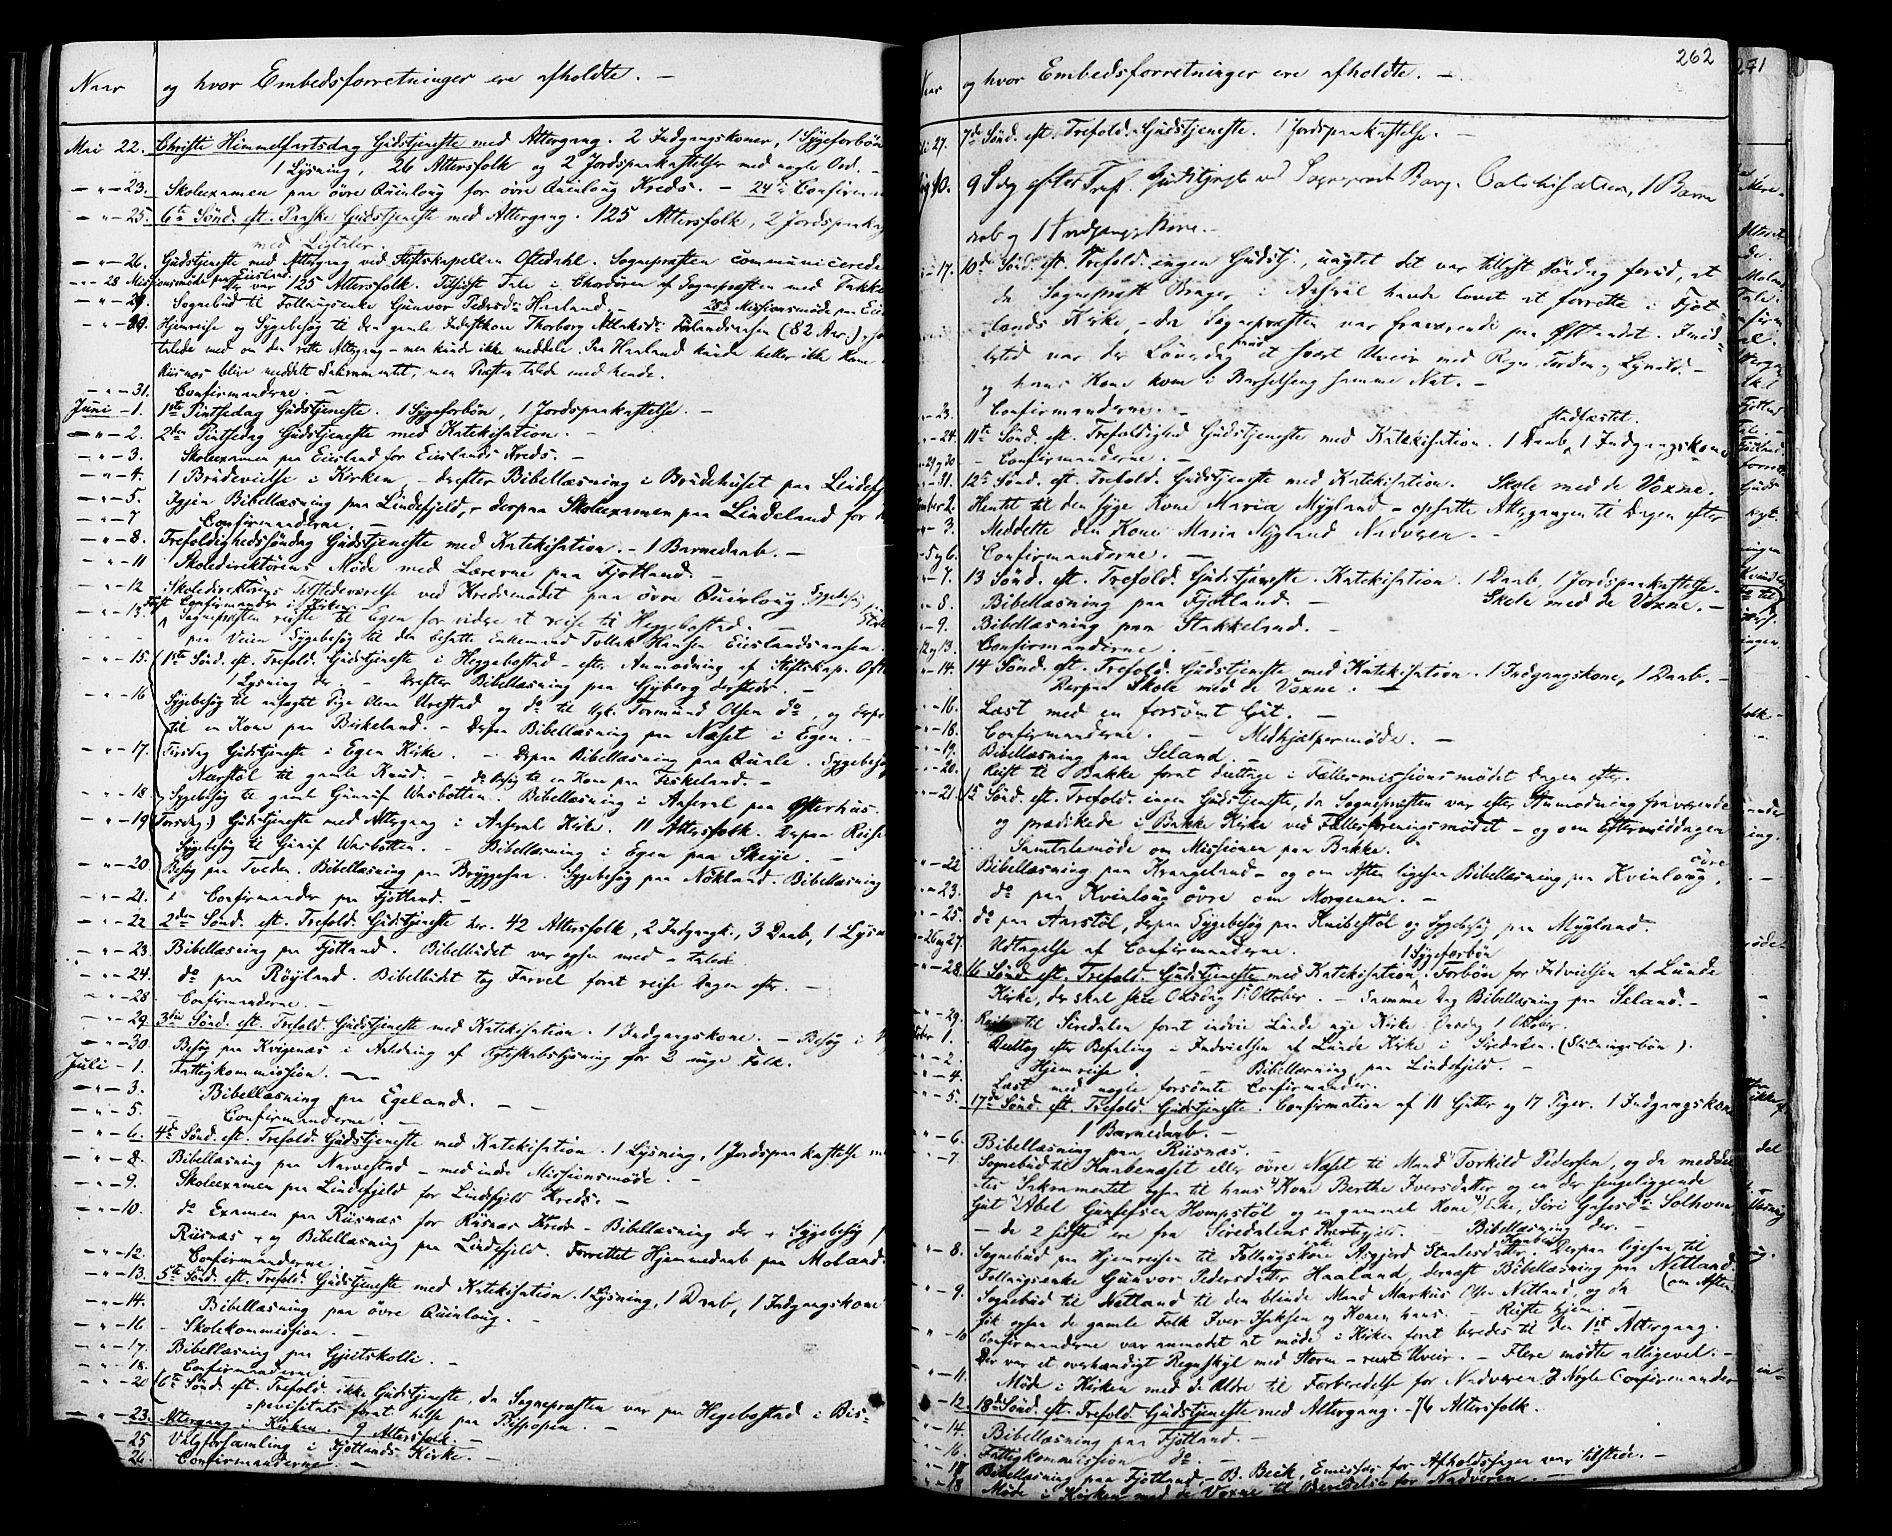 Naar og hvor Embedsforretninger ere afholdte. —
Mai 22. Christi Himmelfartsdag Gudstjeneste med Altergang. 2 Indgangskoner, 1 Sygeforbøn
1 Lysning, 26 Altersfolk og 2 Jordspaakastelser med nogle Ord. —
— " — 23. Skoleexamen paa øvre Quinloug for øvre Quinloug Kreds. — 24de Confirman
— " — 25. 6te Sønd. eft. Paaske Gudstjeneste med Altergang. 125 Altersfolk, 2 Jordspaakas
med Ligtaler.
— " — 26. Gudstjeneste med Altergang ved Stiftskapellan Oftedahl. Sognepræsten communicerede
— " — 28 Missionsmøde paa Eiesland. Der var 125 Altersfolk. Tilsidst Tale i Chordøren af Sognepræsten med Takke
— " — 29. Sognebud til Follaugsenke Gunvor Pedersdr Haaland. — 28de Missionsmøde paa Eies
— " — 29. Hjemreise og Sygebesøg til den gamle Indestkone Thorborg Atlaksdr (82 Aar),
talede med om den rette Altergang — men kunde ikke meddele. Paa Haaland kunde heller ikke Kone
Risnæs blive meddelt Sakramentet, men Præsten talede med hende.
— " — 31. Confirmanderne. —
Juni — 1. 1ste Pintsedag Gudstjeneste. 1 Sygeforbøn, 1 Jordspaakastelse. —
— " — 2. 2den Pintsedag Gudstjeneste med Katekisation. —
— " — 3. Skoleexamen paa Eiesland for Eieslands Kreds. —
— " — 4. 1 Brudevielse i Kirken, — derefter Bibellæsning i Brudehuset paa Lindefj
— " — 5. Igjen Bibellæsning paa Lindefjeld, — derpaa Skoleexamen paa Lindeland for d
— " — 7 Confirmanderne. —
— " — 8. Trefoldighedssøndag Gudstjeneste med Katekisation. — 1 Barnedaab. —
— " — 11 Skoledirektørens Møde med Lærerne paa Fjotland. —
— " — 12 Skoledirektørens Tilstedeværelse ved Kredsmødet paa øvre Quinloug Sygebesøg
— " — 13. Først Confirmander i Kirken. Sognepræsten reiste til Egen for videre at reise til Heggebostad. —
paa Veien Sygebesøg til den besatte Enkemand Tollak Hansen Eieslandsaasen.
— " — 15. 1ste Sønd. eft. Trefold. Gudstjeneste i Heggebostad — efter Anmodning af Stiftskap. Ofte
1 Lysning der. — Derefter Bibellæsning paa Gyberg dersteds. —
— " — 16 Sygebesøg til ansøgt Pige Olena Urestad og do til Ugk. Tormund Olsen do, og derpaa
til en Kone paa Birkeland. — Derpaa Bibellæsning paa Næset i Egen. —
— " — 17. Tirsdag Gudstjeneste i Egen Kirke. — Derpaa Bibellæsning paa Quale. Sygebesøg
Nærstøl til gamle Knud. — do Besøg til en Kone paa Fiskeland. —
— " — 18 Sygebesøg til gaml Gunuf Wasbotten. Bibellæsning i Aaseral paa Ofterhus.
— " — 19 (Torsdag) Gudstjeneste med Altergang i Aaseral Kirke. 11 Altersfolk. Derpaa Reise
Sygebesøg til Gunuf Wasbotten. — Bibellæsning i Egen paa Skeie. —
— " — 20 Besøg paa Tveden. Bibellæsning paa Bryggesaa. Sygebesøg paa Nøkland. Bibellæsning
— " — 21. Confirmander paa Fjotland. —
— " — 22 2den Sønd. eft. Trefold. Gudstjeneste her. 42 Altersfolk, 2 Indgangk., 3 Daab, 1 Lysn
— " — 23. Bibellæsning paa Fjotland. Bibelbudet var ogsaa med — talede
— " — 24. do paa Røyland. Bibelbudet tog Farvel forat reise Dagen efter. —
— " — 28. Confirmanderne. —
— " — 29. 3die Sønd. eft. Trefold. Gudstjeneste med Katekisation. 1 Indgangskone. — Besøg i
— " — 30 Besøg paa Kvigenæs i Anledning af Ægteskabslysning for 2 unge Folk.
Juli — 1. Fattigkommission. —
— " — 3. Bibellæsning paa Egeland. —
— " — 5. Confirmanderne. —
— " — 6. 4de Sønd. eft. Trefold. Gudstjeneste med Katekisation. 1 Lysning, 1 Jordspaakastelse
— " — 8. Bibellæsning paa Narvestad — med indre Missionsmøde. —
— " — 9. Skoleexamen paa Lindefjeld for Lindefjeld Kreds. —
— " — 10. do Examen paa Risnæs for Risnæs Kreds — Bibellæsning der + Sygebesøg
Risnæs + og Bibellæsning paa Lindefjeld. Forrettet Hjemmedaab paa Moland.
— " — 12. Confirmanderne. —
— " — 13. 5te Sønd. eft. Trefold. Gudstjeneste med Katekisation. 1 Lysning, 1 Daab, 1 Indgangskone
— " — 14. Bibellæsning paa øvre Quinloug. —
— " — 16 Skolekommission. —
— " — 17. Bibellæsning paa Gjeitskolli. —
— " — 18. Confirmanderne. —
— " — 20 6te Sønd. eft. Trefold. ikke Gudstjeneste, da Sognepræsten var paa Hegebostad i Bis-
=pevisitats forat hilse paa Bispen. —
— " — 23. Altergang i Kirken. 9 Altersfolk. —
— 25 Valgforsamling i Fjotlands Kirke. —
26. Confirmanderne. —
262
271
Naar og hvor Embedsforretninger ere afholdte. —
27. 7de Sønd. eft. Trefold. Gudstjeneste. 1 Jordspaakastelse. —
10. 9 Sdg efter Tref. Gudstjeneste ved Sognepræst Barg. Catechisation, 1 Barne
daab og 1 Indgangs Kone. —
— 17. 10de Sønd. eft. Trefold. ingen Gudstj., uagtet det var tillyst Søndag forud, at
da Sognepræst Brager i Aaseral havde lovet at forrette i Fjot
lands Kirke, — da Sognepræsten var fraværende paa Østlandet. Imid-
lertid var der Løverdag forud et svært Uveir med Regn, Torden og Lynild, —
og hans Kone kom i Barselseng samme Nat. —
— 23. Confirmanderne. —
— 24. 11te Sønd. eft. Trefoldighed Gudstjeneste med Katekisation. 1 Daab, stadfæstet. 1 Indgangskone
29 og 30 Confirmanderne. —
— 31. 12te Sønd. eft. Trefold. Gudstjeneste med Katekisation. Skole med de Voxne.
2. Hentet til den syge Kone Maria Mygland — opsatte Altergangen til Dagen efter
— 3. Meddelte den Kone Maria Mygland Nadveren. —
5 og 6. Confirmanderne. —
— 7. 13 Sønd. eft. Trefold. Gudstjeneste. Katekisation. 1 Daab, 1 Jordspaakastelse.
— 8. Bibellæsning paa Fjotland. — Skole med de Voxne. —
— 9. Bibellæsning paa Stakkeland. —
12 og 13. Confirmanderne. —
— 14. 14 Sønd. eft. Trefold. Gudstjeneste med Katekisation. 1 Indgangskone, 1 Daab. —
Derpaa Skole med de Voxne. —
— 16. Læst med en forsømt Gut. —
— 18. Confirmanderne. — Medhjælpermøde. —
— 19. Bibellæsning paa Seland. —
— 20. Reist til Bakke forat deeltage i Fællesmissionsmødet Dagen efter.
— 21. 15 Sønd. eft. Trefold. ingen Gudstjeneste, da Sognepræsten var efter Anmodning fraværende
og prædikede i Bakke Kirke ved Fællesforeningsmødet — og om Eftermiddagen
Samtalemøde om Missionen paa Bakke.
— 22 Bibellæsning paa Kvangeland — og om Aften ligesaa Bibellæsning paa Kvinloug øvre.
— 23. do paa Kvinloug øvre om Morgenen. —
— 25. do paa Aarstøl, derpaa Sygebesøg paa Knibestøl og Sygebesøg paa Mygland.
26 og 27. Udtagelse af Confirmanderne.
— 28. 16 Sønd. eft. Trefold. Gudstjeneste med Katekisation. 1 Sygeforbøn Forbøn for Indvielsen af Lunde
Kirke, der skal skee Onsdag 1. Oktober. — Samme Dag Bibellæsning paa Seland. —
— 29. Reise til Siredalen forat indvie Lunde nye Kirke Onsdag 1 Oktober.
1. Deeltog efter Befaling i Indvielsen af Lunde Kirke i Siredalen. (Slutningsbøn).
— 2. Hjemreise. — Bibellæsning paa Lindefjeld. —
— 4. Læst med nogle forsømte Confirmander.
— 5. 17de Sønd. eft. Trefold. Gudstjeneste. Confirmation af 11 Gutter og 17 Piger. 1 Indgangskone
1 Barnedaab. —
— 6. Bibellæsning paa Risnæs. —
— 7. Sognebud til Haabenæset eller øvre Næset til Mand Torkild Pedersen, og da meddel
tes Sakramentet ogsaa til hans Kone Berthe Iversdatter og en der sengeliggende
Gut Abel Gunufsen Hompstøl og en gammel Kone, Enke, Siri Solhom
— de 2 sidste ere fra Siredalens Præstegjeld. Bibellæsning der. —
— 8. Sognebud paa Hjemreisen til Follaugskone Asgjerd Staalesdatter. Derpaa ligesaa til
Follaugsenke Gunvor Pedersdatter Haaland, dernæst Bibellæsning paa Netland (om Aften
— 9. Sognebud til Netland til den blinde Mand Markus Olsen Netland, og da
fik ogsaa de gamle Folk Iver Isaksen og Konen hans. — Reiste hjem. —
— 10 Confirmanderne var anmodet at møde i Kirken forat beredes til den 1ste Altergang.
Der var et overhændigt Regnskyl med Storm — Uveir. — Flere mødte alligevel. —
— 11. Møde i Kirken med de Ældre til Forberedelse for Nadveren. Nogle Confirmander
— 12. 18de Sønd. eft. Trefold. Gudstjeneste med Altergang. — 76 Altersfolk.
— 14. Bibellæsning paa Fjotland. —
— 16. Fattigkommission do. —
— 17 Bibellæsning paa Fjotland, — B. Beck, Emissær for Afholdssagen var tilstede. —
— 18 Møde i Kirken med de Voxne til Beredelse for Nadveren. —